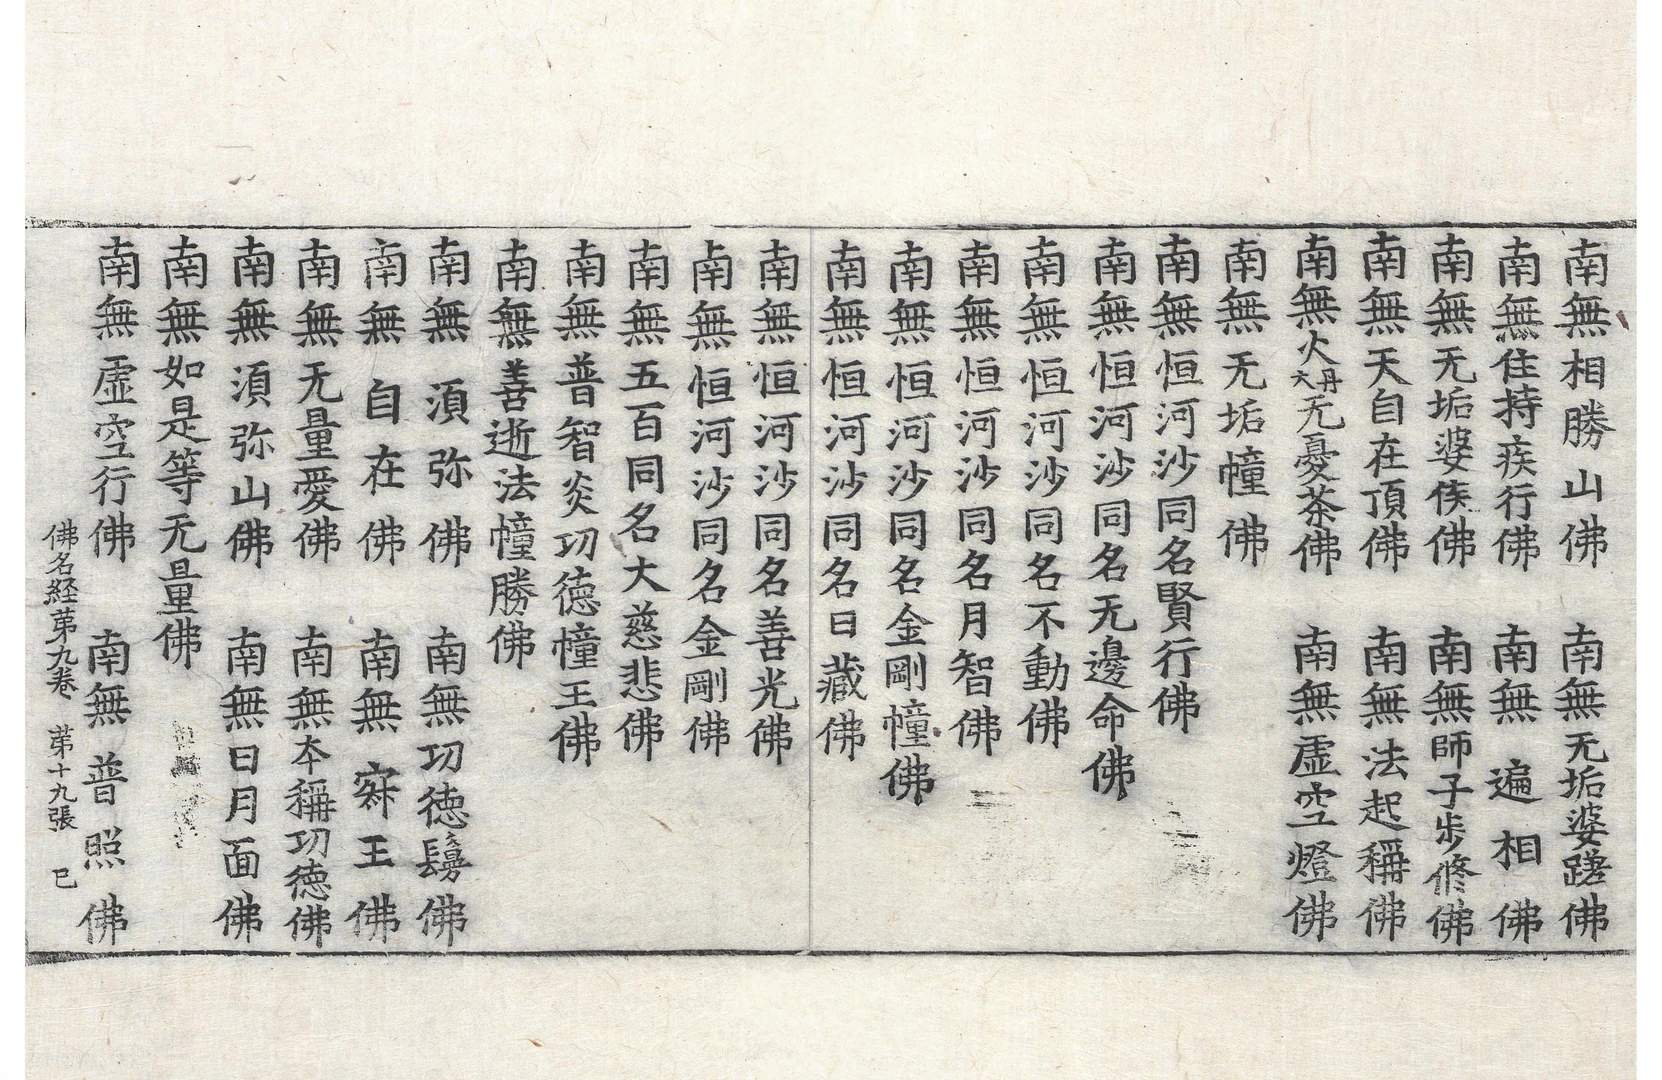 南無相勝山佛　南無无垢婆蹉佛
南無住持疾行佛　南無遍相佛
南無无垢婆佉佛　南無師子步修佛
南無天自在頂佛　南無法起稱佛
南無无憂茶佛　南無虛空燈佛
南無无垢幢佛
南無恒河沙同名賢行佛
南無恒河沙同名无邊命佛
南無恒河沙同名不動佛
南無恒河沙同名月智佛
南無恒河沙同名金剛幢佛
南無恒河沙同名日藏佛
南無恒河沙同名善光佛
南無恒河沙同名金剛佛
南無五百同名大慈悲佛
南無普智炎功德幢王佛
南無善逝法幢勝佛
南無湏弥佛　南無功德鬘佛
南無自在佛　南無寂王佛
南無无量愛佛　南無本稱功德佛
南無湏弥山佛　南無日月面佛
南無如是等无量佛
南無虛空行佛　南無普照佛
佛名経苐九卷　苐十九張　巳